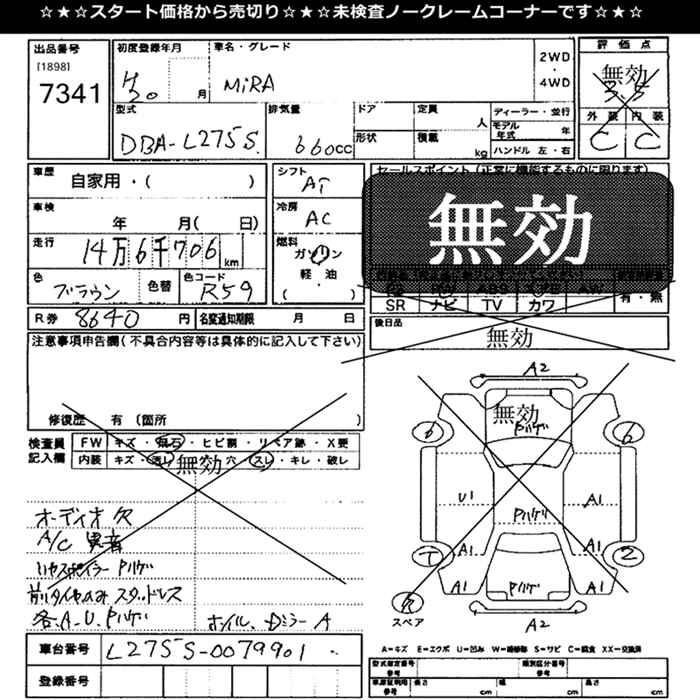 ☆★☆★スタート価格から売切り☆★☆★未検査ノークレームコーナーです☆★☆
出品番号
[1898]
7341
初度登録年月
H20 月
車名・グレード
MiRA
2WD
・
4WD
評価点
無効
3.5
外装 内装
C C
型式
DBA-L275S
排気量
660cc
ドア
形状
定員 人
積載 kg
ディーラー・並行
モデル年式 年
ハンドル 左・右
車歴
自家用・( )
車検
年 月( 日)
走行
14万6千706km
色
ブラウン
色替
色コード
R59
シフト
AT
冷房
AC
燃料
ガソリン
軽・油
( )
セールスポイント(正常に機能するものに限ります)
無効
SR ナビ TV カワ
有・無
R券 8640円
名変通知期限 月 日
後日品
無効
注意事項申告欄(不具合内容等は具体的に記入して下さい)
修復歴 有(箇所 )
検査員
記入欄
FW キズ・飛石・ヒビ割・リペア跡・X要
内装 キズ・汚レ・穴・スレ・キレ・破レ
無効
オーディオ欠
A/C 異音
リヤスポイラー Pハゲ
前タイヤのみ スタッドレス
各.A-U.Pハゲ
ホイル、Dミラー A
A2
無効
Pハゲ
6
U1
Pハゲ
A1
A1
A1
7
2
A1
Pハゲ
A1
欠
スペア
A2
車台番号
L275S-0079901
登録番号
A=キズ E=エクボ U=凹み W=補修跡 S=サビ C=腐食 XX=交換済
型式指定番号
参考
類別区分番号
参考
車庫証明用
参考
長さ cm
幅 cm
高さ cm